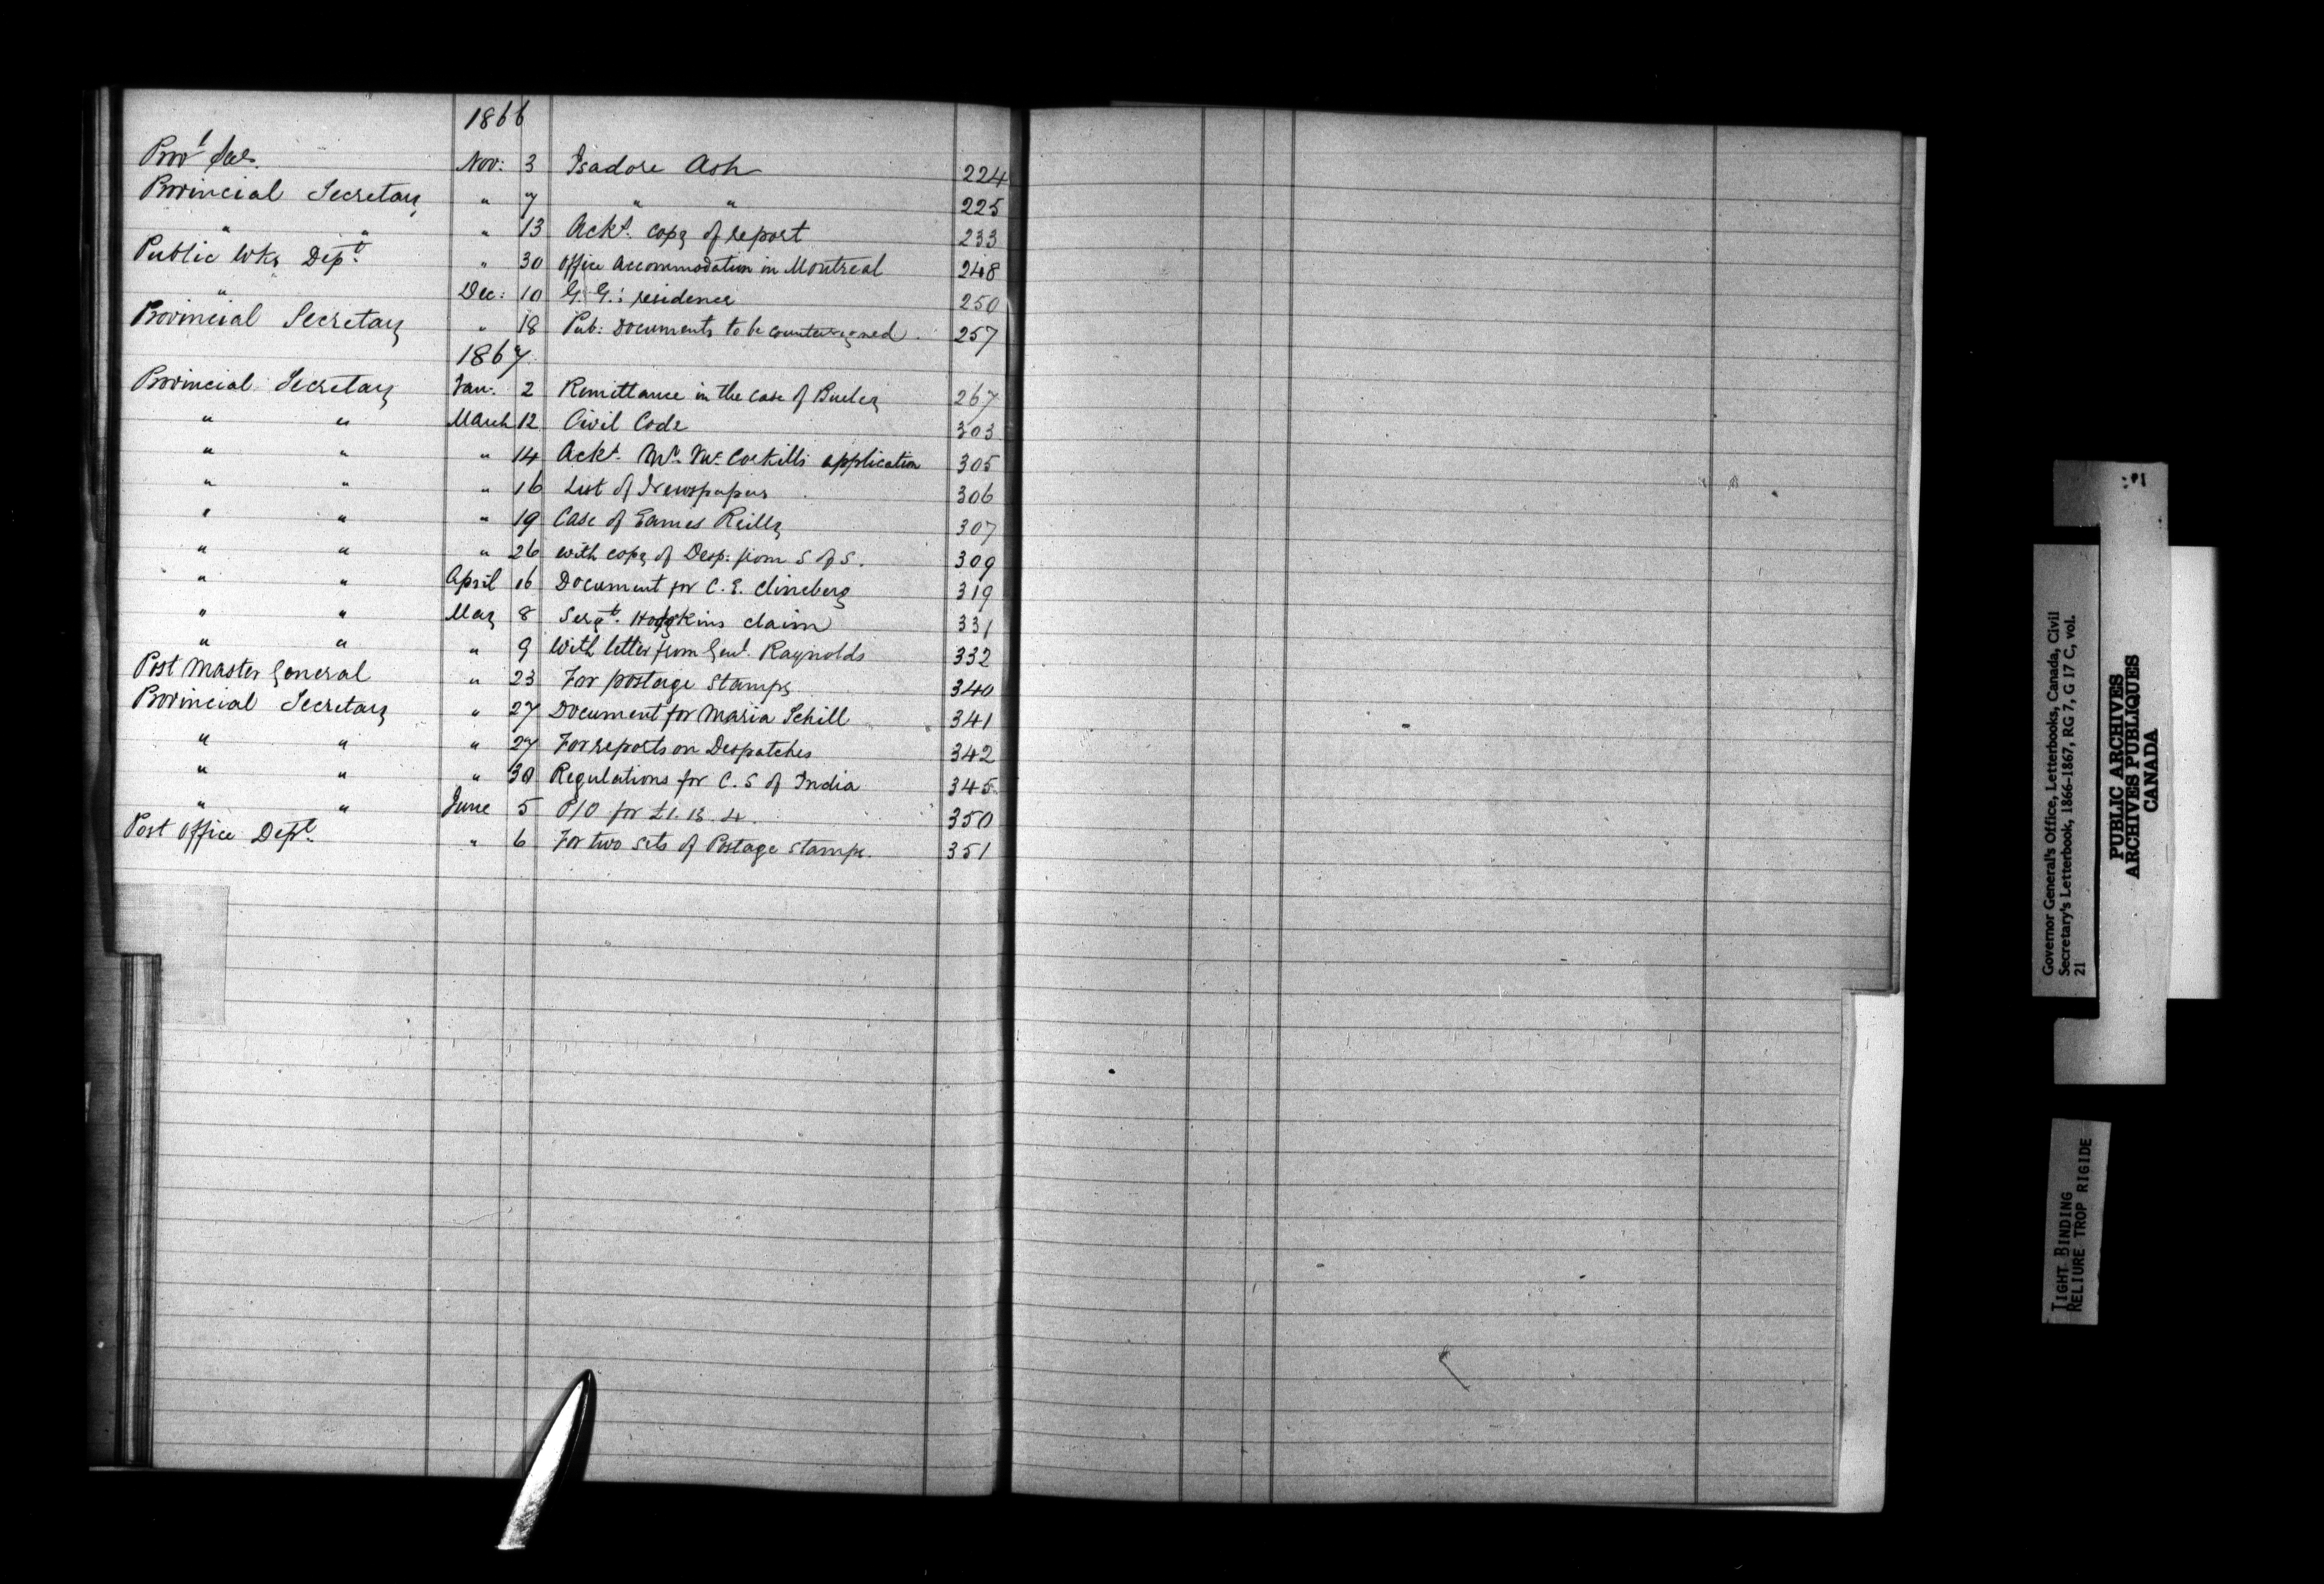 1866
Prov<sup>l</sup> Sec. Nov: 3 Isadore Ash 224
Provincial Secretary " 7 " " 225
" " " 13 Ackt. copy of report 233
Public Wks Dept. " 30 Office Accommodation in Montreal 248
" Dec: 10 G. G.'s residence 250
Provincial Secretary " 18 Pub: Documents to be countersigned. 257
1867
Provincial Secretary Jan. 2 Remittance in the case of 267
" " March 12 Civil Code 303
" " " 14 Ackt. Mr. McCorkills application 305
" " " 16 List of Newspapers 306
" " " 19 Case of James Reilly 307
" " " 26 with copy of Desp: from S of S. 309
" " April 16 Document for C. E. 319
" " May 8 Sergt. Hodgkins claim 331
" " " 9 With letter from Genl. Raynolds 332
Post Master General " 23 For postage Stamps 340
Provincial Secretary " 27 Document for Maria Schill 341
" " " 27 For reports on Despatches 342
" " " 30 Regulations for C. S of India 345
" " June 5 P/O for £1. 13. 4. 350
Post Office Dept. " 6 For two sets of Postage stamps. 351
Governor General's Office, Letterbooks, Canada, Civil
Secretary's Letterbook, 1866-1867, RG 7, G 17 C, vol.
21
PUBLIC ARCHIVES
ARCHIVES PUBLIQUES
CANADA
TIGHT BINDING
RELIURE TROP RIGIDE